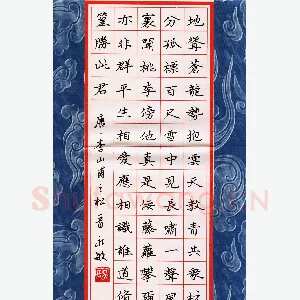 地聳蒼龍勢抱雲天教青共衆材
分孤標百尺雪中見長嘯一聲風
裏聞桃李傍他真是佞藤蘿攀爾
亦非群平生相愛應相識誰道脩
篁勝此君 唐 李山甫之松 永敏